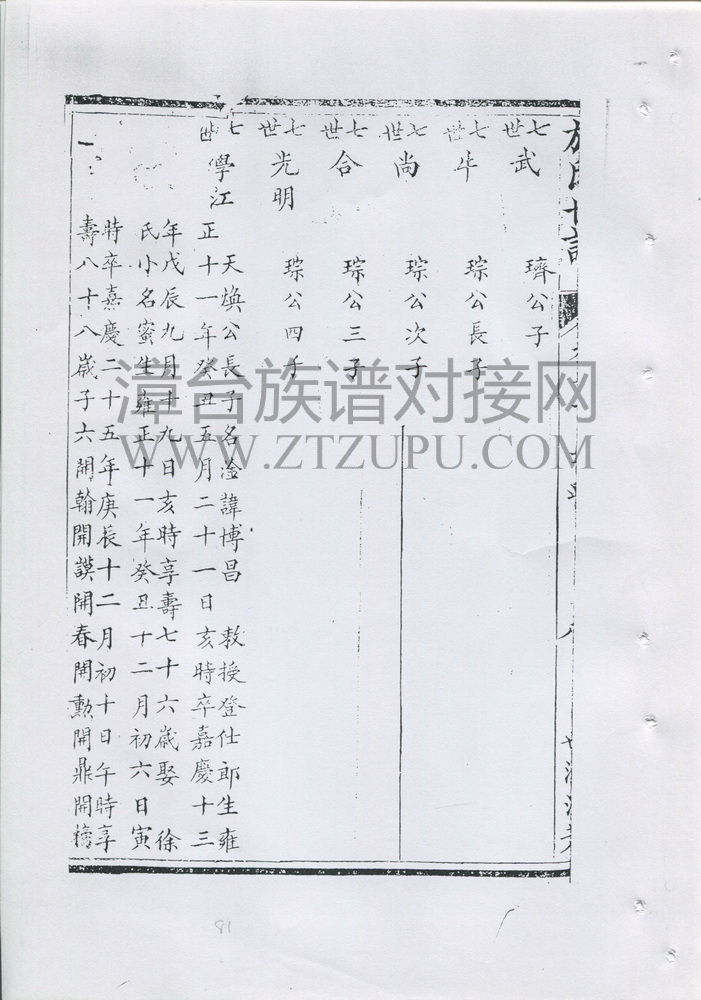 七世 武 璾公子
七世 牛 琮公長子
七世 尚 琮公次子
七世 合 琮公三子
七世 光明 琮公四子
七世 學江 天煥公長子名淦諱博昌 敕授登仕郎生雍
正十一年癸丑五月二十一日亥時卒嘉慶十三
年戊辰九月十九日亥時享壽七十六歲娶 徐
氏小名蜜生雍正十一年癸丑十二月初六日寅
時卒嘉慶二十五年庚辰十二月初十日午時享
壽八十八歲子六開翰開謨開春開勲開鼎開榜
漳台族谱对接网
WWW.ZTZUPU.COM
81